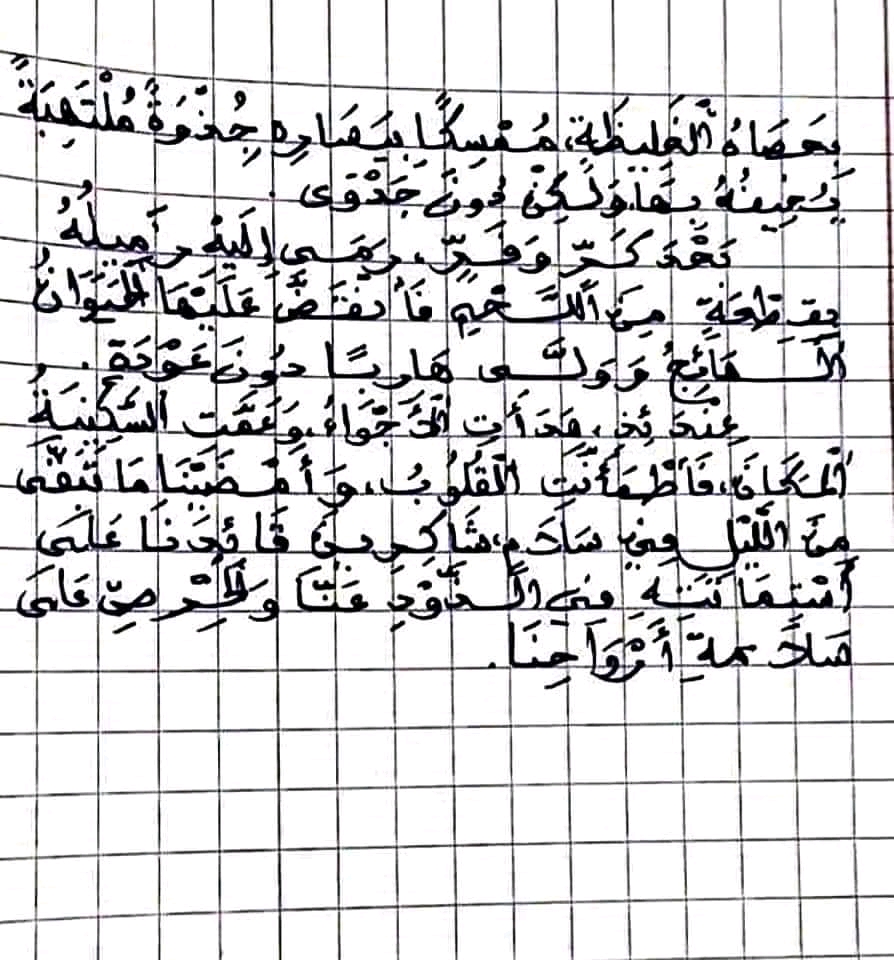 بِعَصَاهُ الْغَلِيظَةِ، مُمْسِكًا بِيَسَارِهِ جِذْوَةً مُلْتَهِبَةً
يُخِيفُهُ بِهَا وَلَكِنْ دُونَ جَدْوَى.
بَعْدَ كَرٍّ وَفَرٍّ، رَمَى إِلَيْهِ زَمِيلُهُ
بِقِطْعَةٍ مِنَ الشَّحْمِ فَانْقَضَّ عَلَيْهَا الْحَيَوَانُ
الْهَائِجُ وَوَلَّى هَارِبًا دُونَ عَوْدَةٍ.
عِنْدَئِذٍ، هَدَأَتِ الْأَجْوَاءُ، وَعَمَّتِ السَّكِينَةُ
الْمَكَانَ، فَاطْمَأَنَّتِ الْقُلُوبُ، وَأَمْضَيْنَا مَا تَبَقَّى
مِنَ اللَّيْلِ فِي سَلَامٍ، شَاكِرِينَ قَائِدَنَا عَلَى
اسْتِمَاتَتِهِ فِي الذَّوْدِ عَنَّا وَالْحِرْصِ عَلَى
سَلَامَةِ أَرْوَاحِنَا.